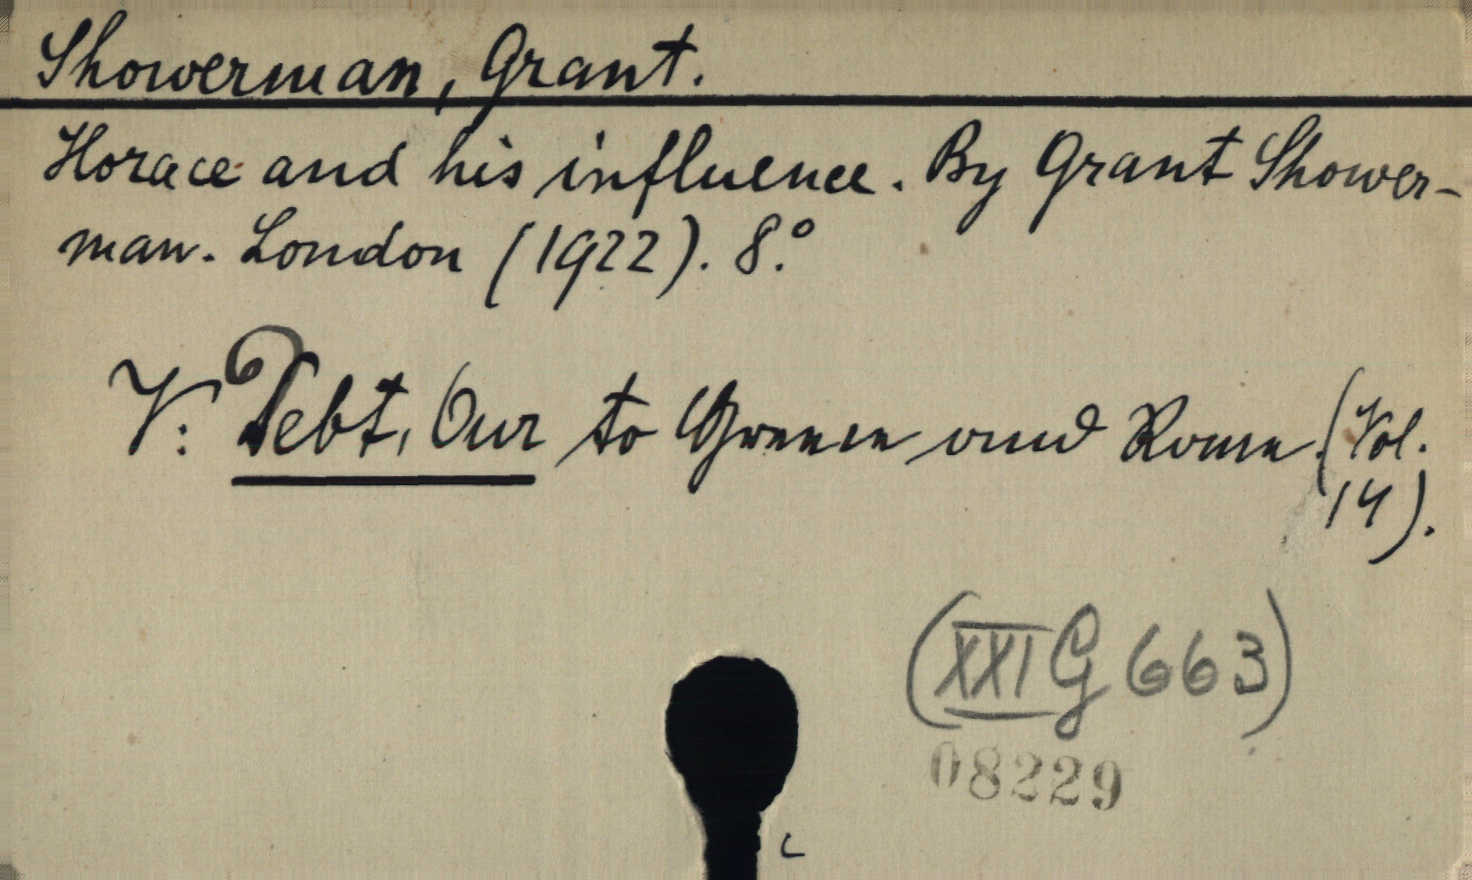 Showerman, Grant.
Horace and his influence. By Grant Shower-
man. London (1922). 8.°
V: Debt, Our to Greece and Rome. (Vol.
14).
(XXI G 663)
08229
c